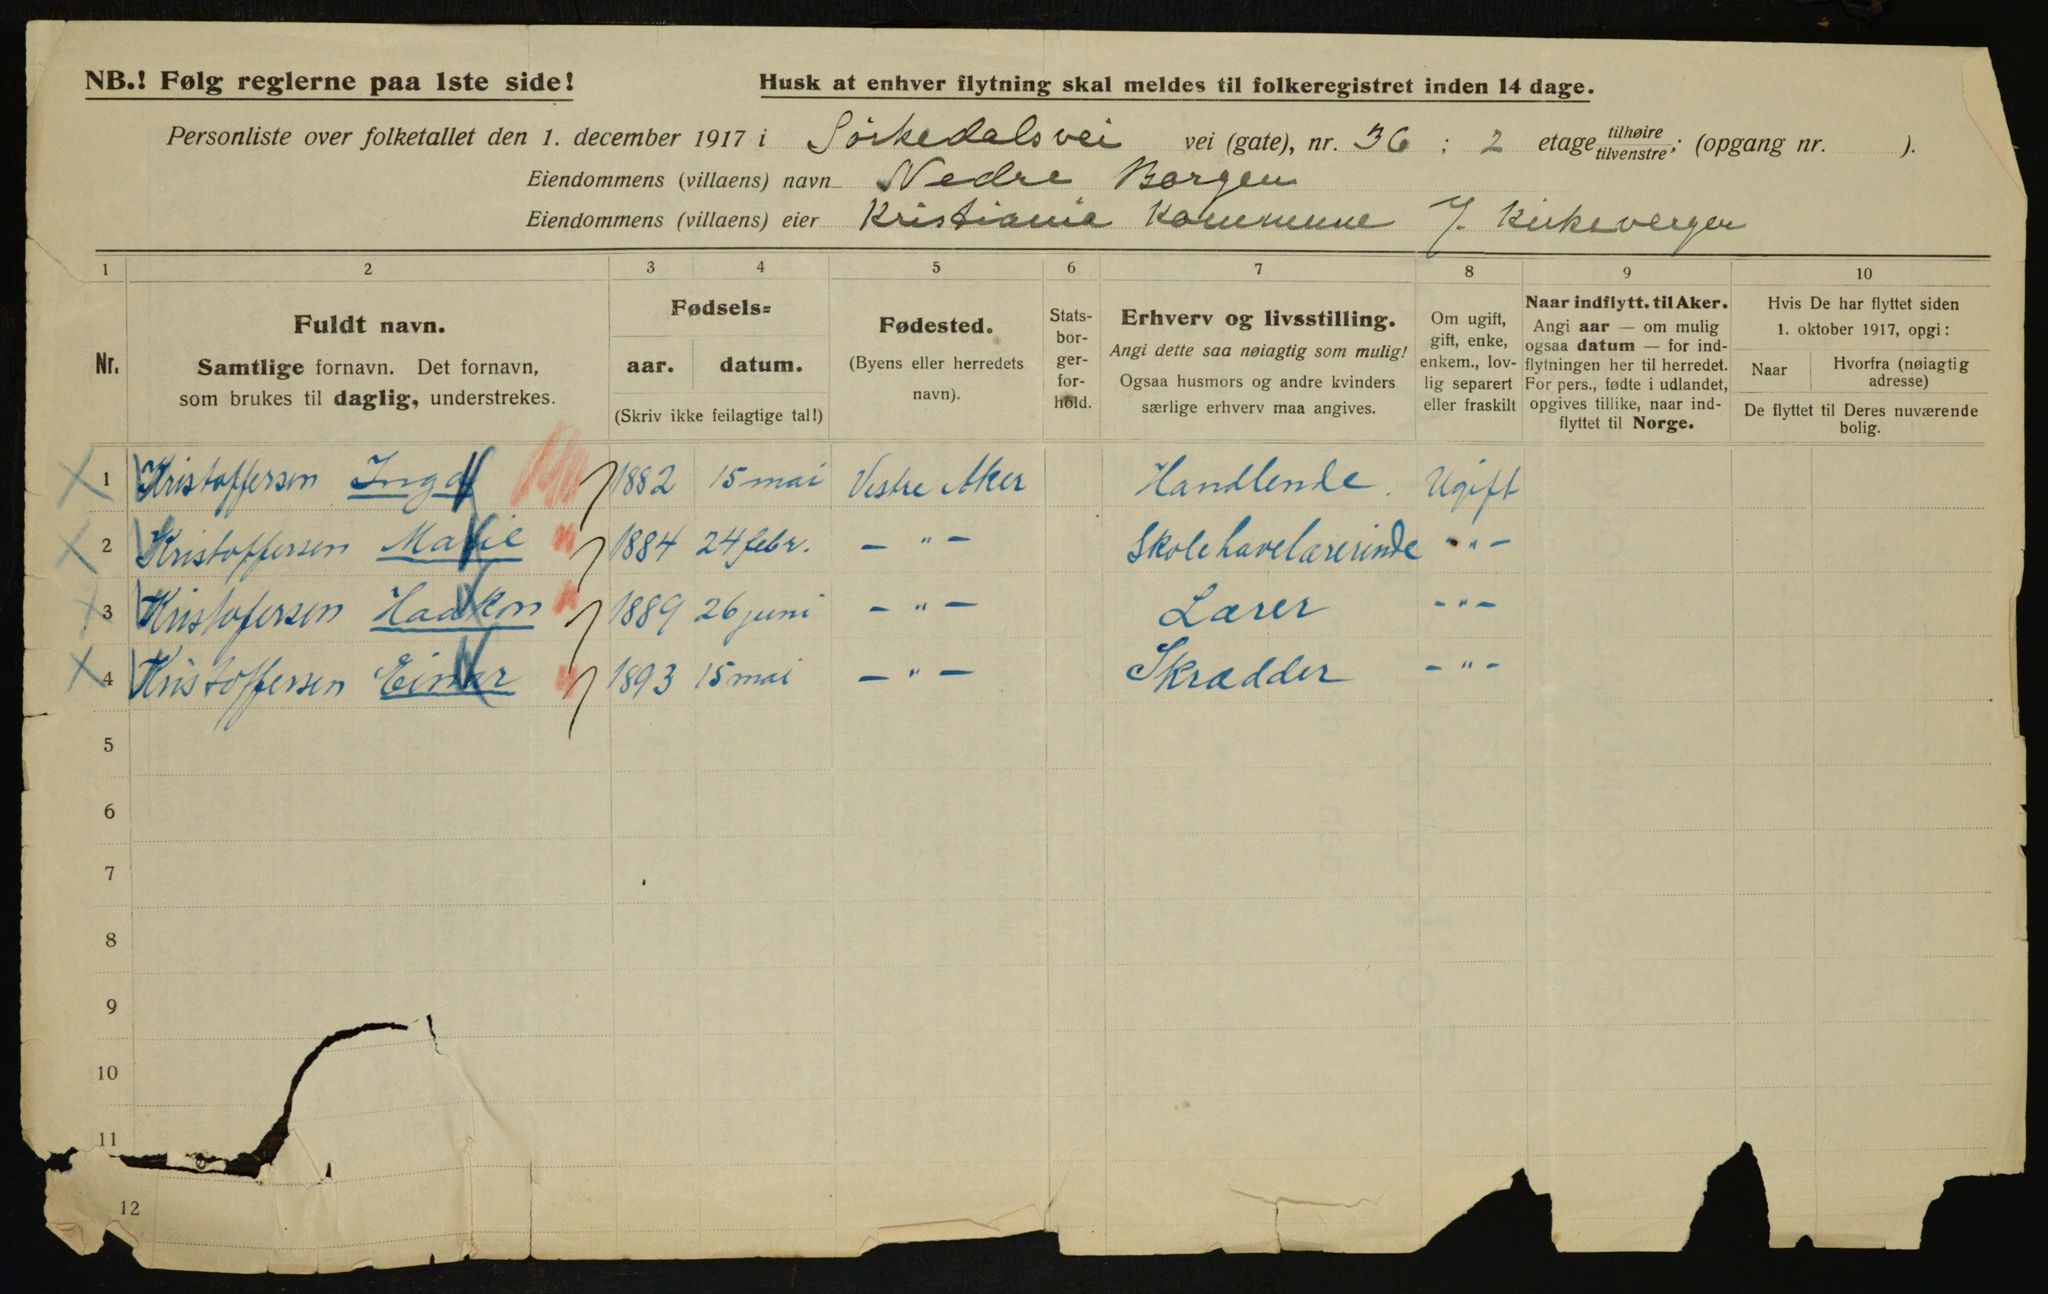 NB.! Følg reglerne paa 1ste side!
Husk at enhver flytning skal meldes til folkeregistret inden 14 dage.
Personliste over folketallet den 1. december 1917 i Sörkedalsvei vei (gate), nr. 36 ; 2 etage tilhøire tilvenstre; (opgang nr. ).
Eiendommens (villaens) navn Nedre Borgen
Eiendommens (villaens) eier Kristiania Kommune J. Kirkeverger
1 2 3 4 5 6 7 8 9 10
Nr.
Fuldt navn.
Samtlige fornavn. Det fornavn,
som brukes til daglig, understrekes.
Fødsels=
aar. datum.
(Skriv ikke feilagtige tal!)
Fødested.
(Byens eller herredets
navn).
Stats-
bor-
ger-
for-
hold.
Erhverv og livsstilling.
Angi dette saa nøiagtig som mulig!
Ogsaa husmors og andre kvinders
særlige erhverv maa angives.
Om ugift,
gift, enke,
enkem., lov-
lig separert
eller fraskilt
Naar indflytt. til Aker.
Angi aar — om mulig
ogsaa datum — for ind-
flytningen her til herredet.
For pers., fødte i utlandet,
opgives tillike, naar ind-
flyttet til Norge.
Hvis De har flyttet siden
1. oktober 1917, opgi:
Naar
Hvorfra (nøiagtig
adresse)
De flyttet til Deres nuværende
bolig.
1 Kristoffersen Inga 1882 15 mai Vestre Aker Handlende. Ugift
2 Kristoffersen Marie 1884 24 febr. — " — Skolehavelærerinde - " -
3 Kristofersen Haakon 1889 26 juni — " — Lærer - " -
4 Kristoffersen Einar 1893 15 mai — " — Skrædder - " -
5
6
7
8
9
10
11
12